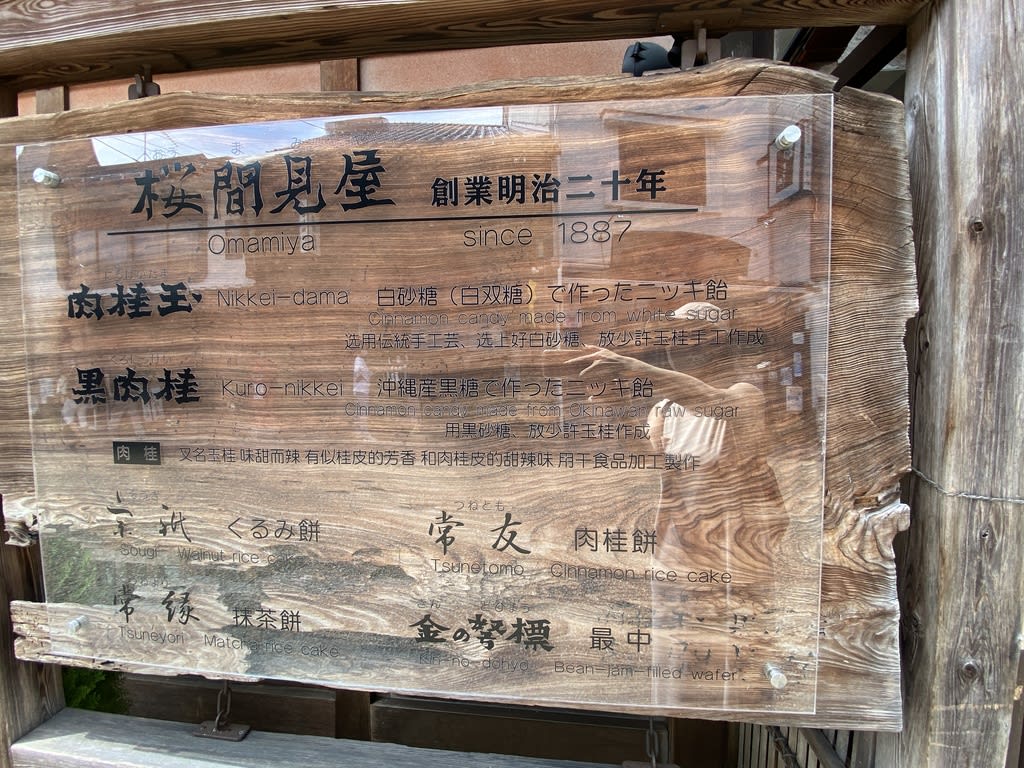 桜間見屋 創業明治二十年
Omamiya since 1887
肉桂玉 Nikkei-dama 白砂糖（白双糖）で作ったニッキ飴
Cinnamon candy made from white sugar
选用伝統手工芸、选上好白砂糖、放少許玉桂手工作成
黒肉桂 Kuro-nikkei 沖縄産黒糖で作ったニッキ飴
Cinnamon candy made from Okinawan raw sugar
用黒砂糖、放少許玉桂作成
肉桂 叉名玉桂 味甜而辣 有似桂皮的芳香 和肉桂皮的甜辣味 用干食品加工製作
宗祇 くるみ餅
Sougi Walnut rice cake
つねとも
常友 肉桂餅
Tsunetomo Cinnamon rice cake
常縁 抹茶餅
Tsuneyori Matcha rice cake
金の 標 最中
Kin-no dohyo Bean-jam-filled wafer